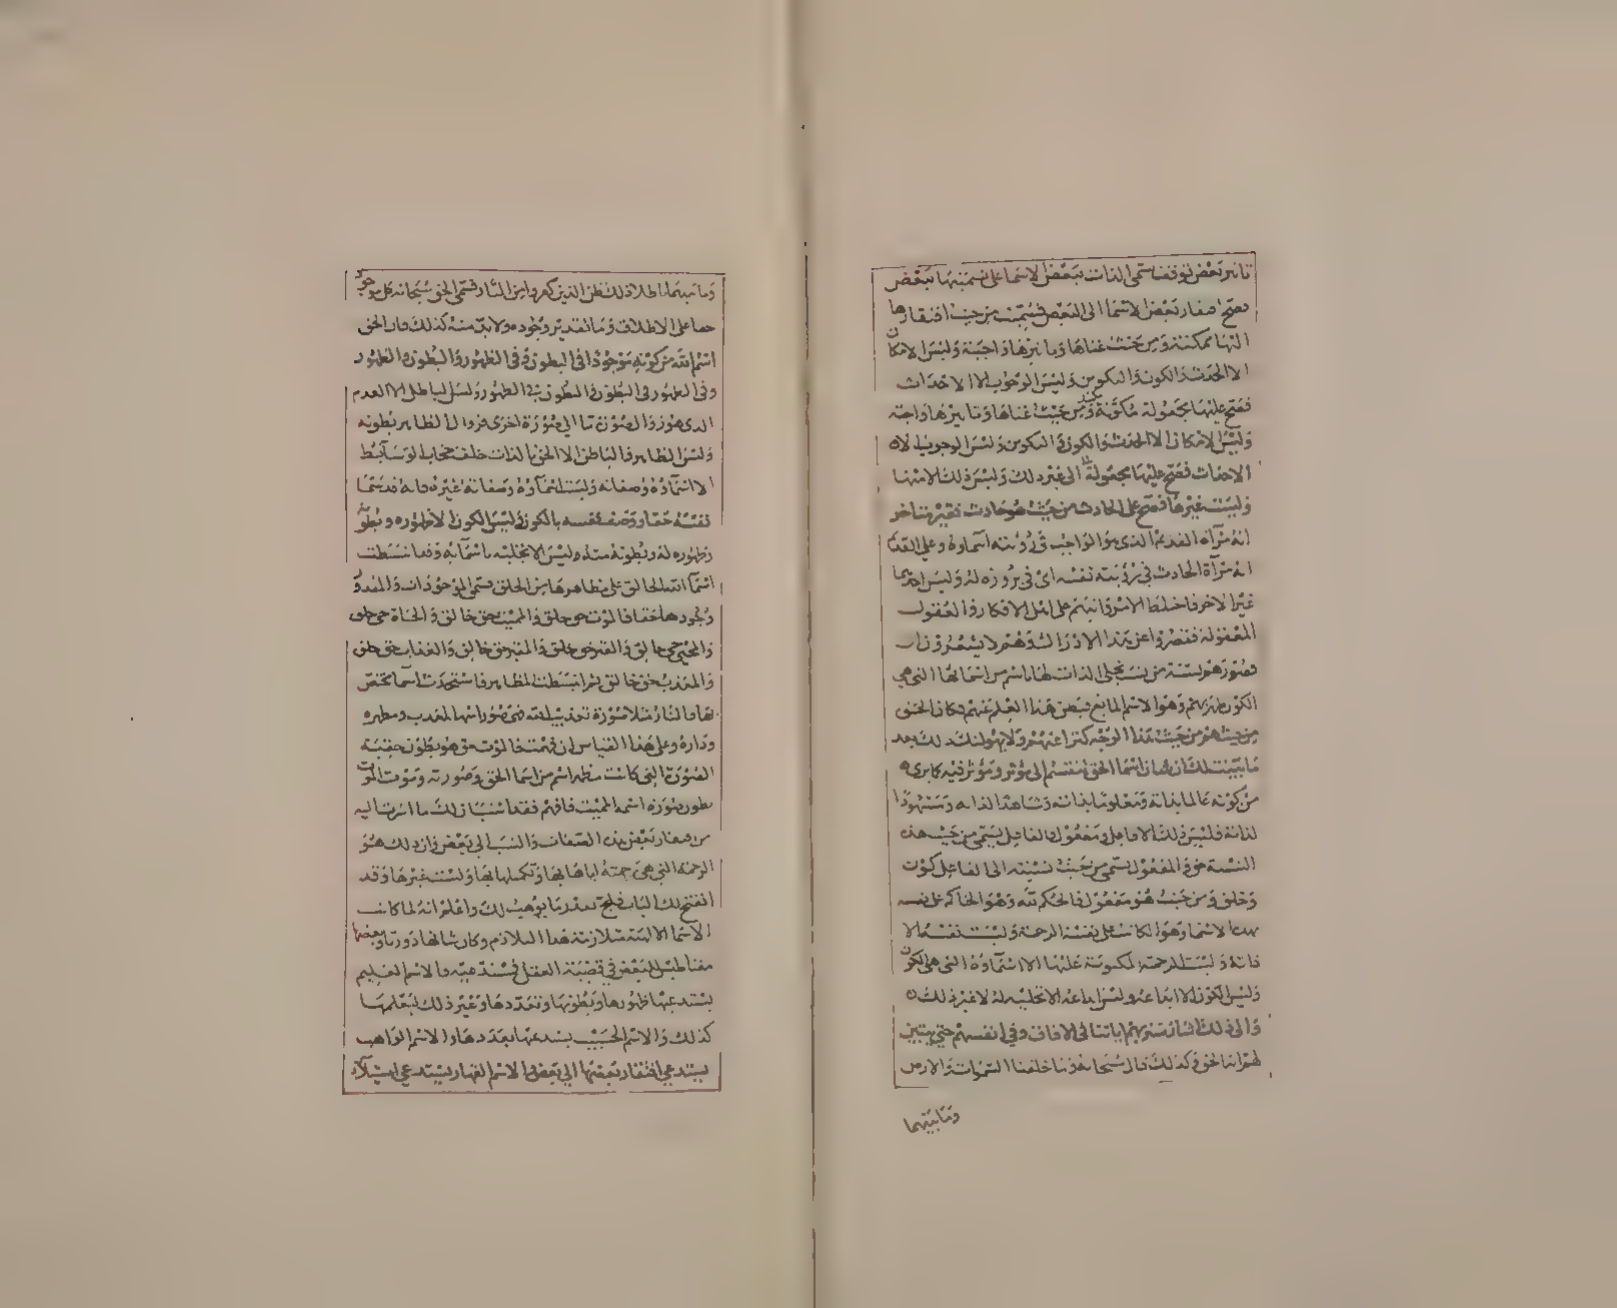 تاثير بعض لوقف مسمى الذات ببعض الاسما على تسميتها ببعض
فصح افتقار بعض الاسما الى البعض فسميت من حيث افتقارها
انها ممكنة ومن حيث غناها وتاثيرها واجبة وليس الامكان
الا الحدث والكون والتكوين وليس الوجوب الا الاحداث
فصح عليها مجعولة مكونة ومن حيث غناها وتاثيرها واجبة
وليس الامكان الا الحدث والكون والتكوين وليس الوجوب الا
الاحداث فصح عليها مجعولة الى غير ذلك وليس ذلك الامنها
وليست غيرها فصح على الحادث من حيث هو حادث فقير متاخر
انه مرآة القديم الذى هو الواجب فى رؤيته اسماوه وعلى القديم
انه مرآة الحادث في رؤيته نفسه اى في بروزه له وليس احدهما
غير الاخر فاختلط الامر وانبهم على اهل الافكار والعقول
المعقولة فقصروا عن هذا الادراك وهم لا يشعرون ان
قصورهم نسبة من نسب تجلى الذات لها باسم من اسمائها التى هى
الكون ظهر بهم وهو الاسم المانع فبطن هذا العلم عنهم فكان الحق
من حيث هم من حيث هذا الوجه كنزا عنهم ولا يهولنك ذلك بعد
ما بينت لك ان اسما الحق تنقسم الى مؤثر ومؤثر فيه كما برى
من كونه عالما بذاته ومعلوما بذاته وشاهدا لذاته ومشهودا
لذاته فليس ذلك الا فاعل ومفعول فالفاعل يسمى من حيث هذه
النسبة حق والمفعول يسمى من حيث نسبته الى الفاعل كون
وخلق ومن حيث هو مفعول فالحكم لله وهو الحاكم على نفسه
بهذا الاسما وهو الكاتب على نفسه الرحمة وليست نفسه الا
ذاته وليست الرحمة المكتوبة عليها الا اسماوه التى هى الكون
وليس الكون الا ابداعه وليس ابداعه الا تجليه له لا غير ذلك
والى ذلك اشار سنريهم اياتنا فى الافاق وفى انفسهم حتى يتبين
لهم انه الحق وكذلك قال سبحانه وما خلقنا السموات والارض
وما بينهما
وما بينهما باطلا ذلك ظن الذين كفروا من النار فسمى الحق سبحانه كل موجود
حقا على الاطلاق وما تقدير وجوده ولا بد منه كذلك فان الحق
اسم لله من كونه موجودا فى البطون وفى الظهور والبطون والظهور
وفى الظهور فى البطون والبطون فى الظهور وليس الباطل الا العدم
الذى هو زوال صورة ما الى صورة اخرى فزوال الظاهر بطونه
وليس الظاهر والباطن الا الحق بالذات خلف حجاب الوسائط
الا اسماؤه وصفاته وليست اسماؤه وصفاته غيره فانه قد سمى
نفسه حقا ووصف نفسه بالكون وليس الكون الا ظهوره وبطونه
وظهوره له وبطونه منه وليس الا تجليه باسمائه وقد انبسطت
اسما الله الخالق على مظاهرها من الخلق فسمى الموجودات والمقدر
وجودها حقا فالموت حق خلق والمميت حق خالق والحياة حق خلق
والمحيى حق خالق والقبر حق خلق والمقبر حق خالق والعذاب حق خلق
والمعذب حق خالق ثم انبسطت المظاهر فاستحدث اسما تختص
بها فالنار مثلا صورة تعذيب لله فهى صورة اسمها المعذب ومظهره
وداره وعلى هذا القياس ان فهمت فالموت حق هو بطون حقيقة
الصورة التى كانت مظهر اسم من اسما الحق وصورته وموت الموت
بطون صورة اسمه المميت فافهم فقد انتسبا ذلك ما اشرنا اليه
من افتقار بعض هذه الصفات والنسب الى بعض وان ذلك هو
الرحمة التى هى رحمته اياها بها وتكملها بها وليست غيرها وقد
انفتح لك الباب فلج بقدر ما يوهب لك واعلم انه لما كانت
الاسما الالهية متلازمة هذا التلازم وكان شانها دوريا وبعضها
مغناطيس البعض في قضية العقل فيستدعيه فالاسم العليم
يستدعيها ظهورها وبطونها وتعددها وغير ذلك ليعلمها
كذلك والاسم الحسيب يستدعيها بعددها والاسم الواهب
يستدعي افتقار بعضها الى بعض والاسم القهار يستدعي استيلاء